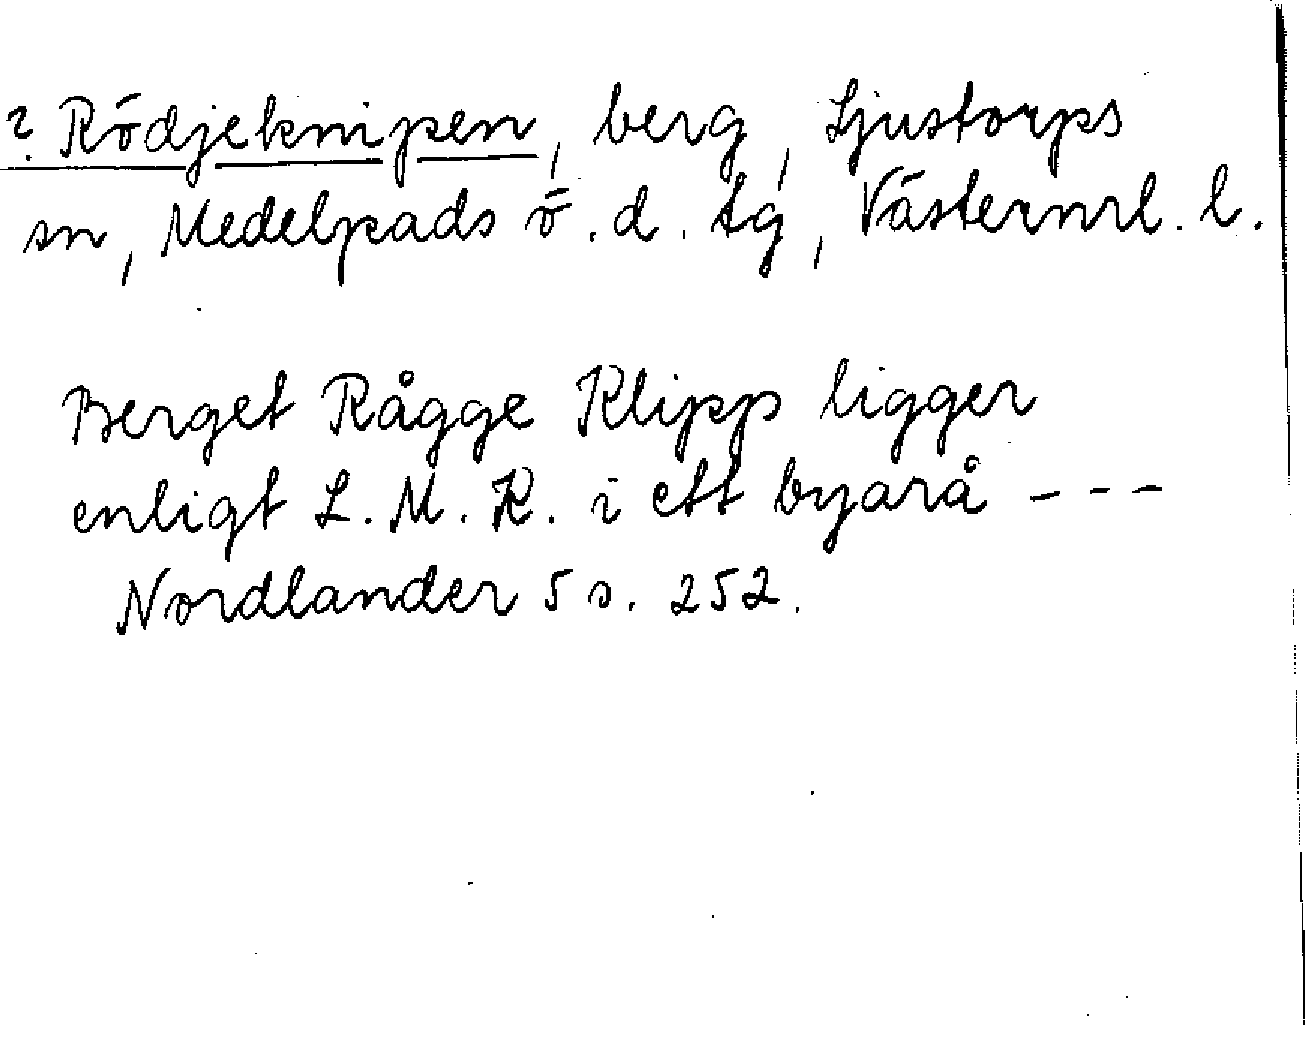 ? Rödjeknipen, berg, Ljustorps
sn, Medelpads ö. d. tg, Västernrl. l.
Berget Rågge Klipp ligger
enligt L. M. K. i ett byarå - - -
Nordlander 5 s. 252.